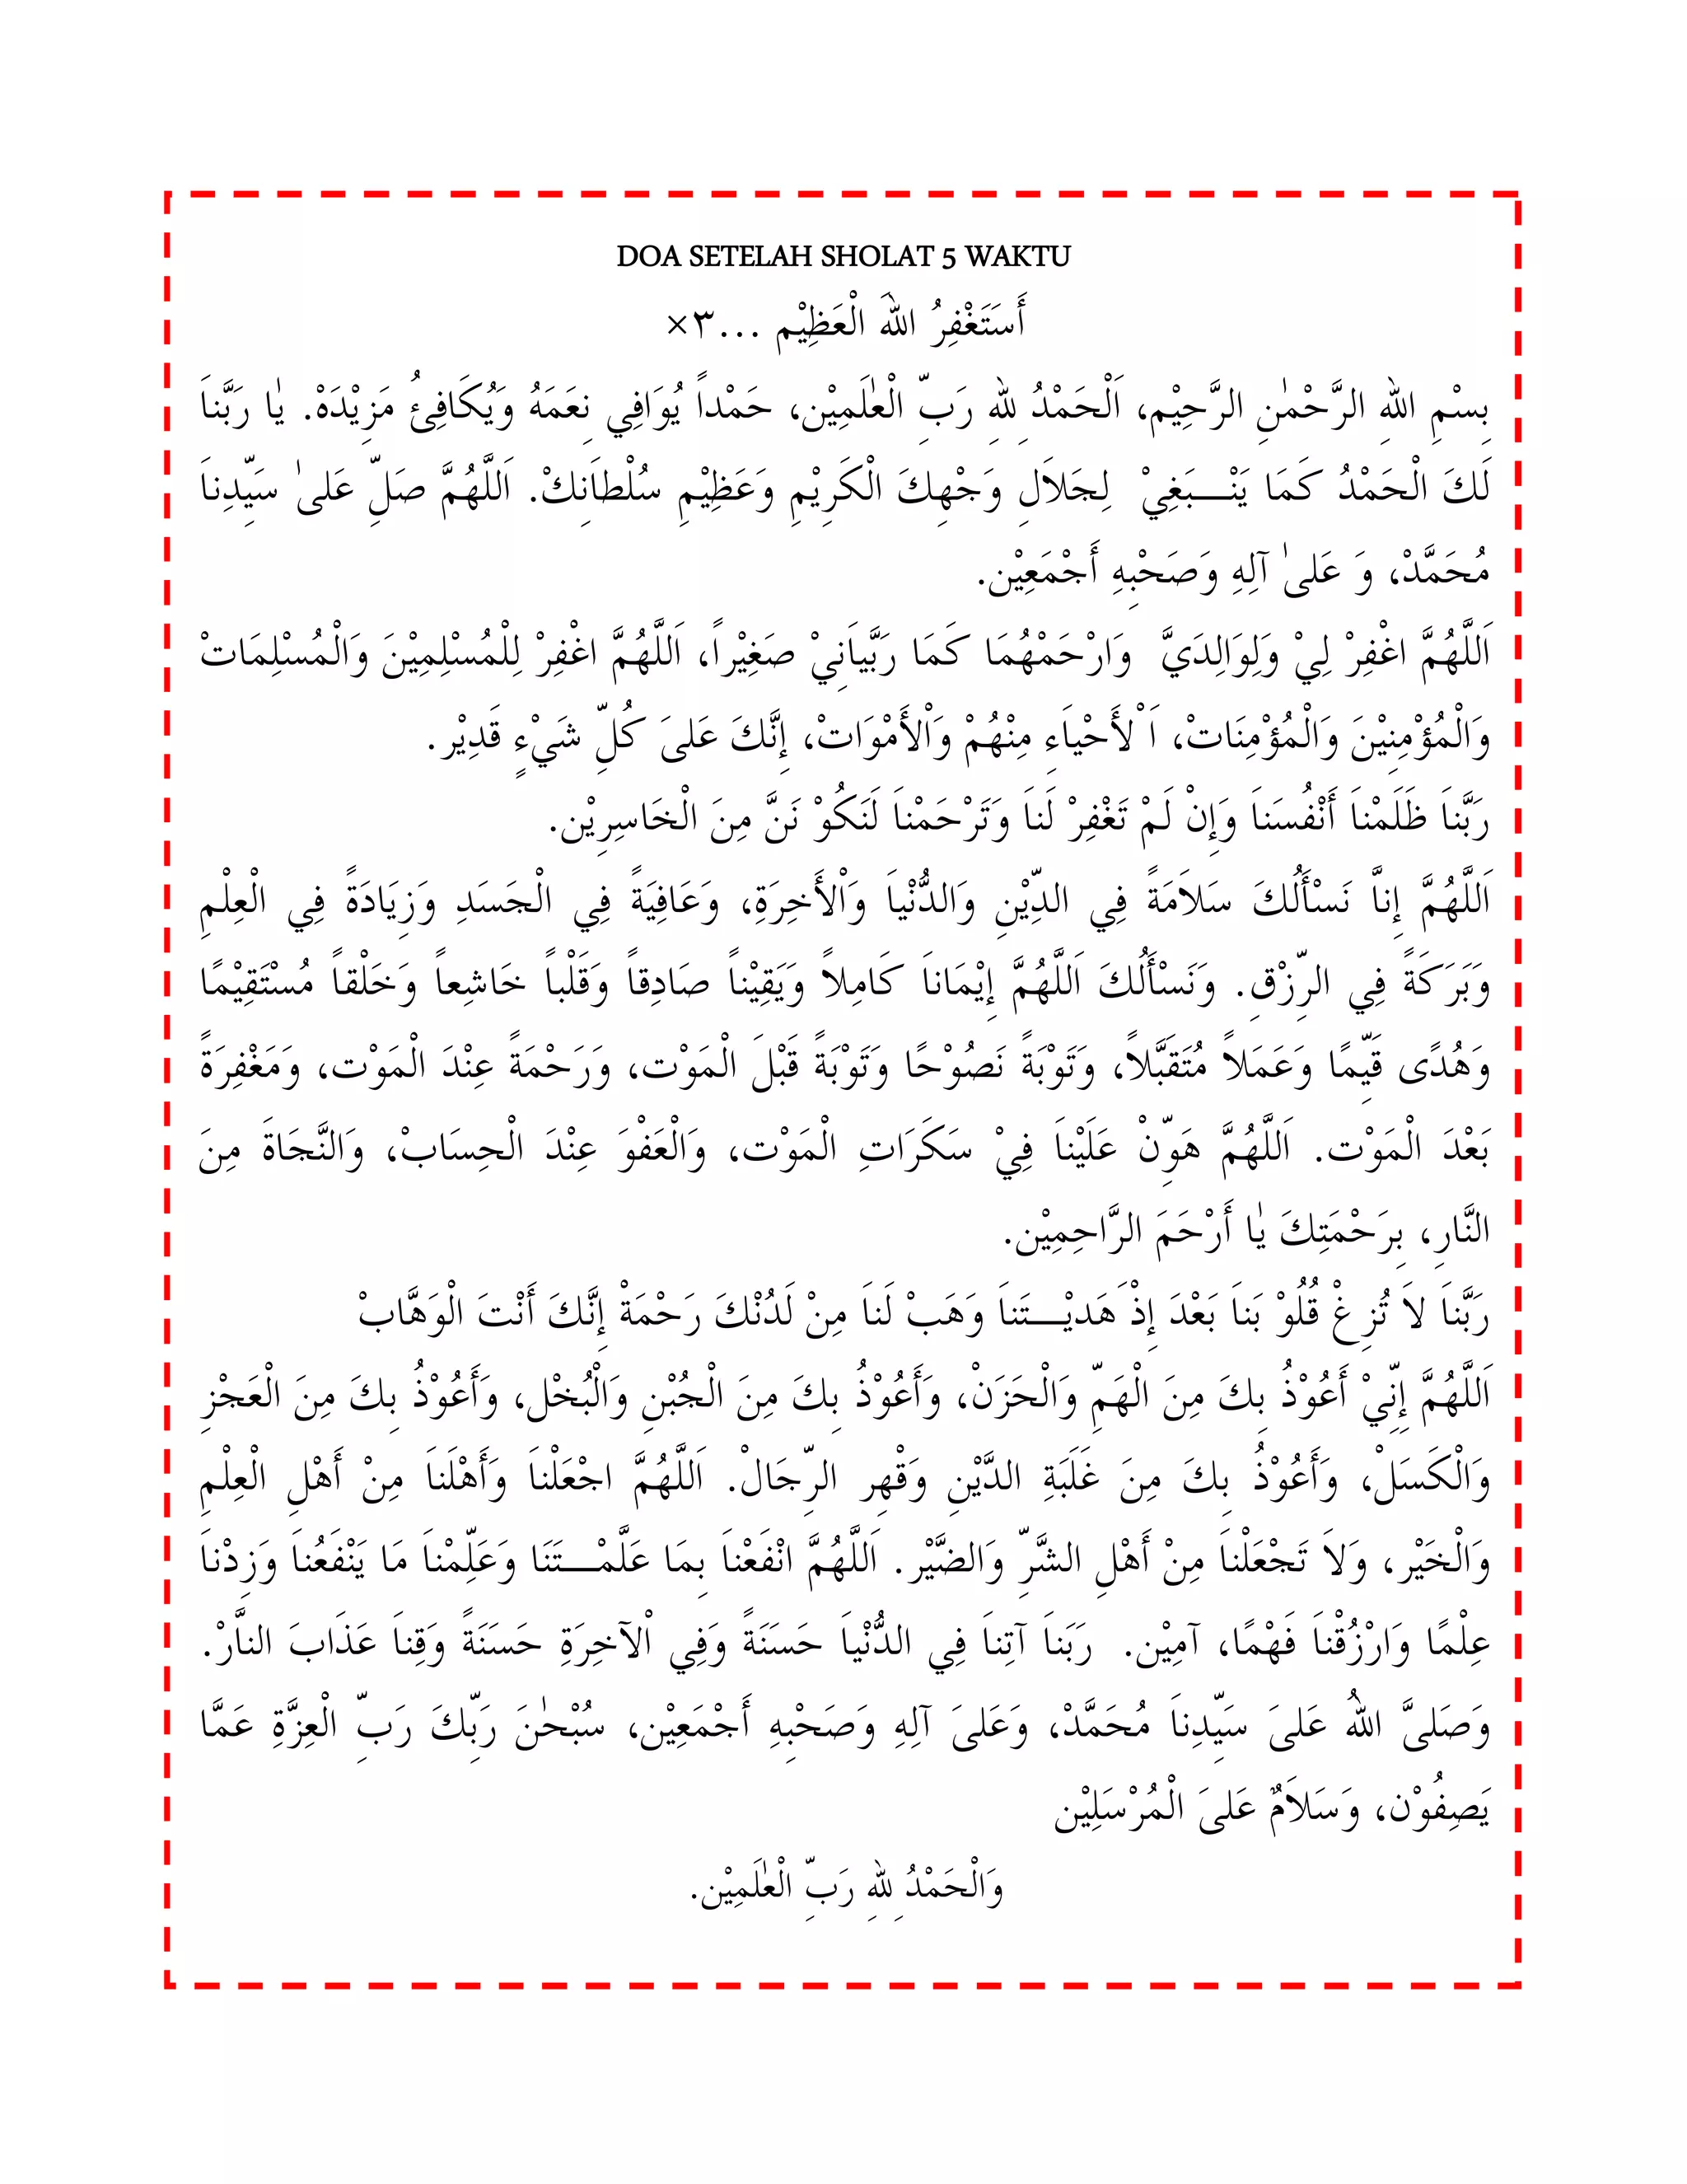 DOA SETELAH SHOLAT 5 WAKTU
أَسَتَغْفِرُ اللهَ الْعَظِيْم ...٣×
بِسْمِ اللهِ الرَّحْمٰنِ الرَّحِيْم، اَلْحَمْدُ لِلهِ رَبِّ الْعٰلَمِيْن، حَمْداً يُوَافِي نِعَمَهُ وَيُكَافِئُ مَزِيْدَهْ. يٰا رَبَّناَ
لَكَ الْحَمْدُ كَمَا يَنْـــبَغِيْ لِجَلاَلِ وَجْهِكَ الْكَرِيْمِ وَعَظِيْمِ سُلْطاَنِكْ. اَللَّهُمَّ صَلِّ عَلىٰ سَيِّدِناَ
مُحَمَّدْ، وَ عَلىٰ آلِهِ وَصَحْبِهِ أَجْمَعِيْن.
اَللَّهُمَّ اغْفِرْ لِيْ وَلِوَالِدَيَّ وَارْحَمْهُمَا كَمَا رَبَّياَنِيْ صَغِيْراً، اَللَّهُمَّ اغْفِرْ لِلْمُسْلِمِيْنَ وَالْمُسْلِمَاتْ
وَالْمُؤْمِنِيْنَ وَالْمُؤْمِنَاتْ، اَ ْلأَحْياَءِ مِنْهُمْ وَاْلأَمْوَاتْ، إِنَّكَ عَلىَ كُلِّ شَيْءٍ قَدِيْر.
رَبَّناَ ظَلَمْناَ أَنْفُسَناَ وَإِنْ لَمْ تَغْفِرْ لَناَ وَتَرْحَمْناَ لَنَكُوْ نَنَّ مِنَ الْخَاسِرِيْن.
اَللَّهُمَّ إِناَّ نَسْأَلُكَ سَلاَمَةً فِي الدِّيْنِ وَالدُّنْياَ وَاْلأَخِرَةِ، وَعَافِيَةً فِي الْجَسَدِ وَزِيَادَةً فِي الْعِلْمِ
وَبَرَكَةً فِي الرِّزْقِ. وَنَسْأَلُكَ اَللَّهُمَّ إِيْمَاناَ كَامِلاً وَيَقِيْناً صَادِقاً وَقَلْباً خَاشِعاً وَخَلْقاً مُسْتَقِيْمًا
وَهُدًى قَيِّمًا وَعَمَلاً مُتَقَبَّلاً، وَتَوْبَةً نَصُوْحًا وَتَوْبَةً قَبْلَ الْمَوْت، وَرَحْمَةً عِنْدَ الْمَوْت، وَمَغْفِرَةً
بَعْدَ الْمَوْت. اَللَّهُمَّ هَوِّنْ عَلَيْناَ فِيْ سَكَرَاتِ الْمَوْت، وَالْعَفْوَ عِنْدَ الْحِسَابْ، وَالنَّجَاةَ مِنَ
النَّارِ، بِرَحْمَتِكَ يٰا أَرْحَمَ الرَّاحِمِيْن.
رَبَّناَ لاَ تُزِغْ قُلُوْ بَناَ بَعْدَ إِذْ هَديْـــتَناَ وَهَبْ لَناَ مِنْ لَدُنْكَ رَحْمَةْ إِنَّكَ أَنْتَ الْوَهَّابْ
اَللَّهُمَّ إِنِّيْ أَعُوْذُ بِكَ مِنَ الْهَمِّ وَالْحَزَنْ، وَأَعُوْذُ بِكَ مِنَ الْجُبْنِ وَالْبُخْل، وَأَعُوْذُ بِكَ مِنَ الْعَجْزِ
وَالْكَسَلْ، وَأَعُوْذُ بِكَ مِنَ غَلَبَةِ الدَّيْنِ وَقْهِر الرِّجَالْ. اَللَّهُمَّ اجْعَلْناَ وَأَهْلَناَ مِنْ أَهْلِ الْعِلْمِ
وَالْخَيْر، وَلاَ تَجْعَلْناَ مِنْ أَهْلِ الشَّرِّ وَالضَّيْر. اَللَّهُمَّ انْفَعْناَ بِمَا عَلَّمْـــتَنَا وَعَلِّمْناَ مَا يَنْفَعُناَ وَزِدْناَ
عِلْمًا وَارْزُقْناَ فَهْمًا، آمِيْن. رَبَناَ آتِناَ فِي الدُّنْياَ حَسَنَةً وَفِي اْلآخِرَةِ حَسَنَةً وَقِناَ عَذَابَ الناَّرْ.
وَصَلىَّ اللهُ عَلىَ سَيِّدِناَ مُحَمَّدْ، وَعَلىَ آلِهِ وَصَحْبِهِ أَجْمَعِيْن، سُبْحٰنَ رَبِّكَ رَبِّ الْعِزَّةِ عَمَّا
يَصِفُوْن، وَسَلاَمٌ عَلىَ الْمُرْسَلِيْن
وَالْحَمْدُ لِلهِ رَبِّ الْعٰلَمِيْن.